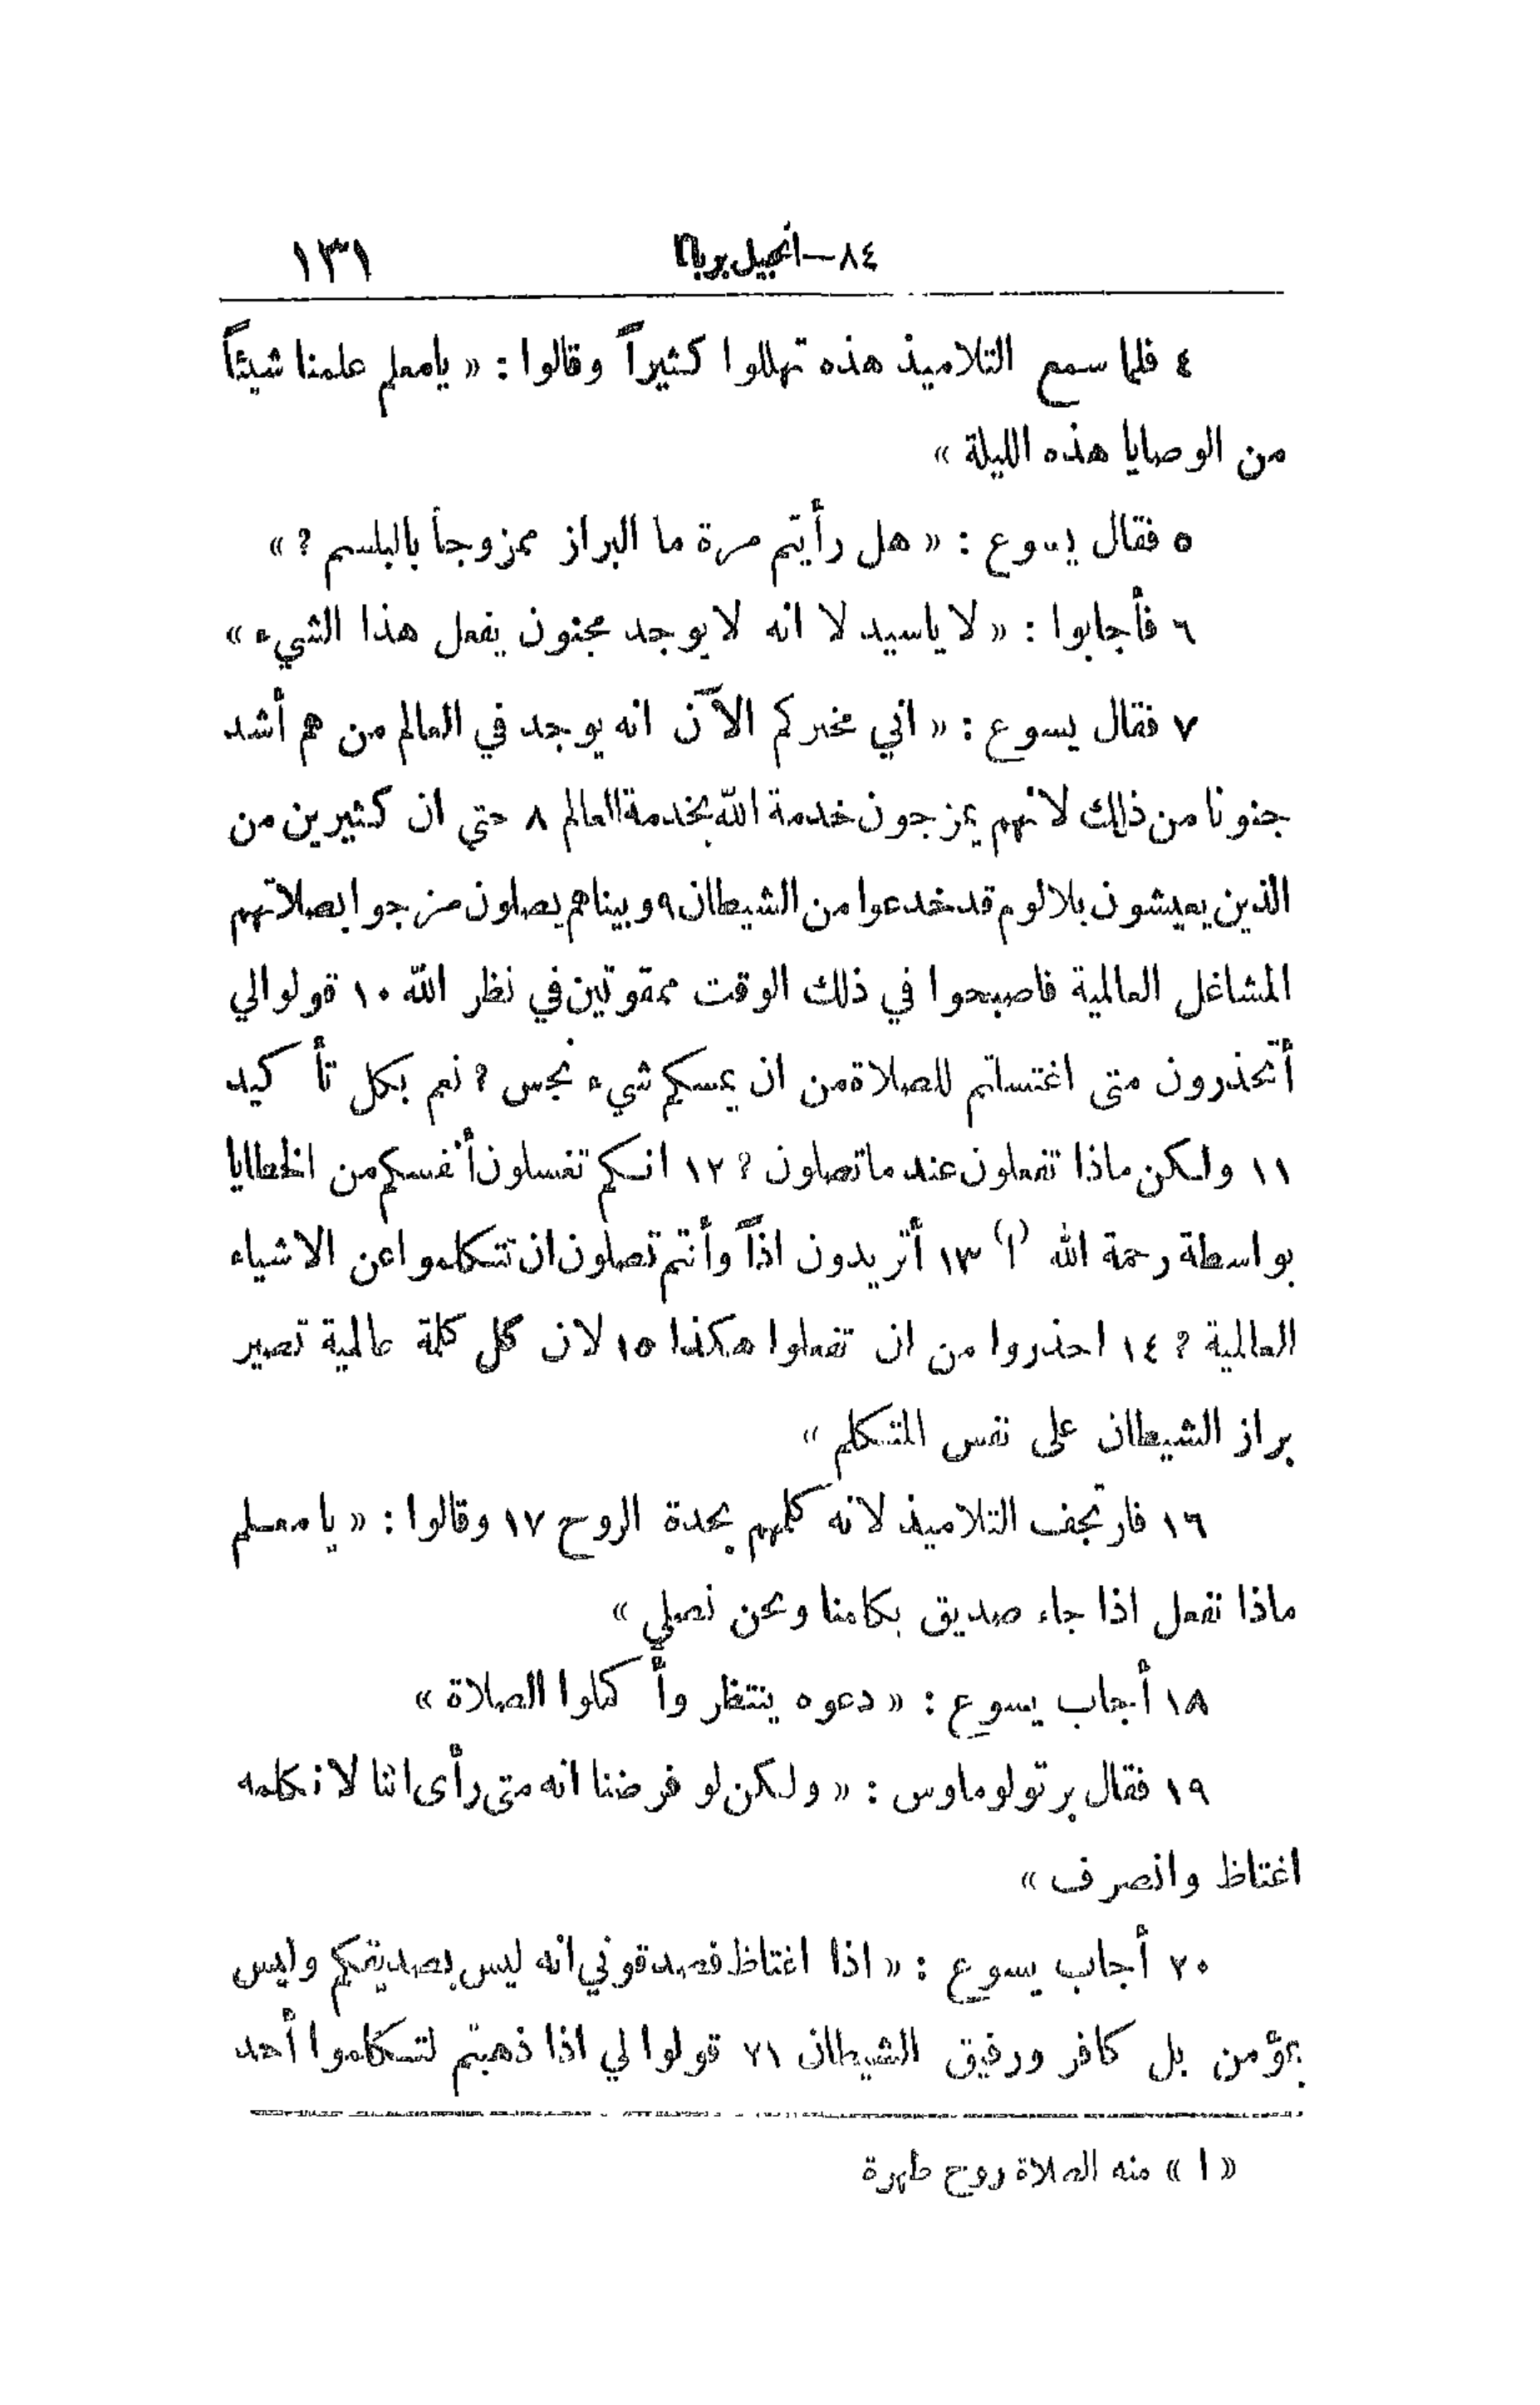 ٨٤—انجيل برنابا ١٣١
٤ فلما سمع التلاميذ هذه تهللوا كثيراً وقالوا : « يامعلم علمنا شيئاً
من الوصايا هذه الليلة »
٥ فقال يسوع : « هل رأيتم مرة ما البراز ممزوجاً بالبلسم ؟ »
٦ فأجابوا : « لا ياسيد لا انه لا يوجد مجنون يفعل هذا الشيء »
٧ فقال يسوع : « اني مخبركم الآن انه يوجد في العالم من هم أشد
جنونا من ذلك لانهم يمزجون خدمة الله بخدمة العالم ٨ حتى ان كثيرين من
الذين يعيشون بلا لوم قد خدعوا من الشيطان ٩ وبينما هم يصلون مزجوا بصلاتهم
المشاغل العالمية فاصبحوا في ذلك الوقت ممقوتين في نظر الله ١٠ قولوا لي
أتحذرون متى اغتسلتم للصلاة من ان يمسكم شيء نجس ؟ نعم بكل تأكيد
١١ ولكن ماذا تفعلون عند ما تصلون ؟ ١٢ انكم تغسلون أنفسكم من الخطايا
بواسطة رحمة الله (١) ١٣ أتريدون اذاً وأنتم تصلون ان تتكلموا عن الاشياء
العالمية ؟ ١٤ احذروا من ان تفعلوا هكذا ١٥ لان كل كلمة عالمية تصير
براز الشيطان على نفس المتكلم »
١٦ فارتجف التلاميذ لانه كلمهم بحدة الروح ١٧ وقالوا : « يا معلم
ماذا نفعل اذا جاء صديق يكلمنا ونحن نصلي »
١٨ أجاب يسوع : « دعوه ينتظر وأكملوا الصلاة »
١٩ فقال برتولوماوس : « ولكن لو فرضنا انه متى رأى اننا لا نكلمه
اغتاظ وانصرف »
٢٠ أجاب يسوع : « اذا اغتاظ فصدقوني انه ليس بصديقكم وليس
بمؤمن بل كافر ورفيق الشيطان ٢١ قولوا لي اذا ذهبتم لتكلموا أحد
« ١ » منه الصلاة روح طهرة